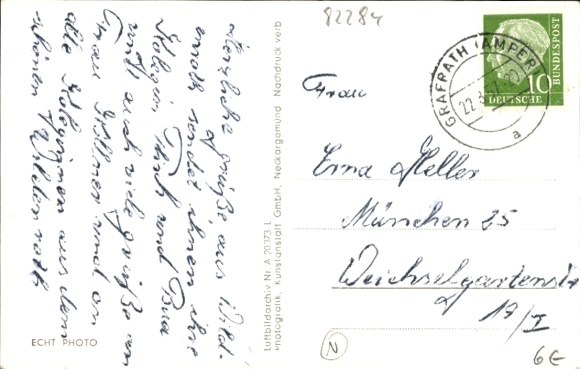 82284
Herzliche Grüße aus Wild-
enroth sendet ihnen ihre
Kollegin Finck und Bua
und auch viele Grüße an
Frau Köllner und an
alle Kolleginnen aus dem
schönen Wildenroth
ECHT PHOTO
Luftbildarchiv Nr. A 20373 L
Kunstanstalt GmbH, Neckargemünd Nachdruck verb
GRAFRATH (AMPER)
22.8.57
a
10
DEUTSCHE
BUNDESPOST
Frau
Erna Heller
München 25
Weichselgartenstr
17/I
N
6€